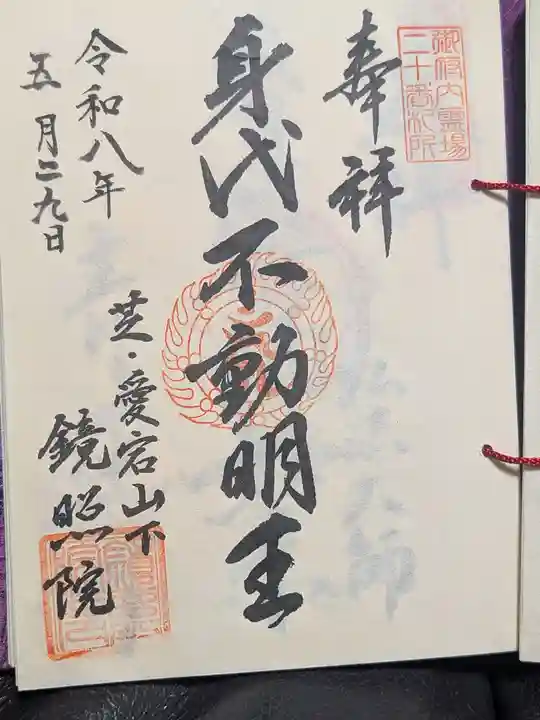 御府内霊場
二十番札所
奉拝
身代不動明王
芝・愛宕山下
鏡照院
令和八年
五月二九日